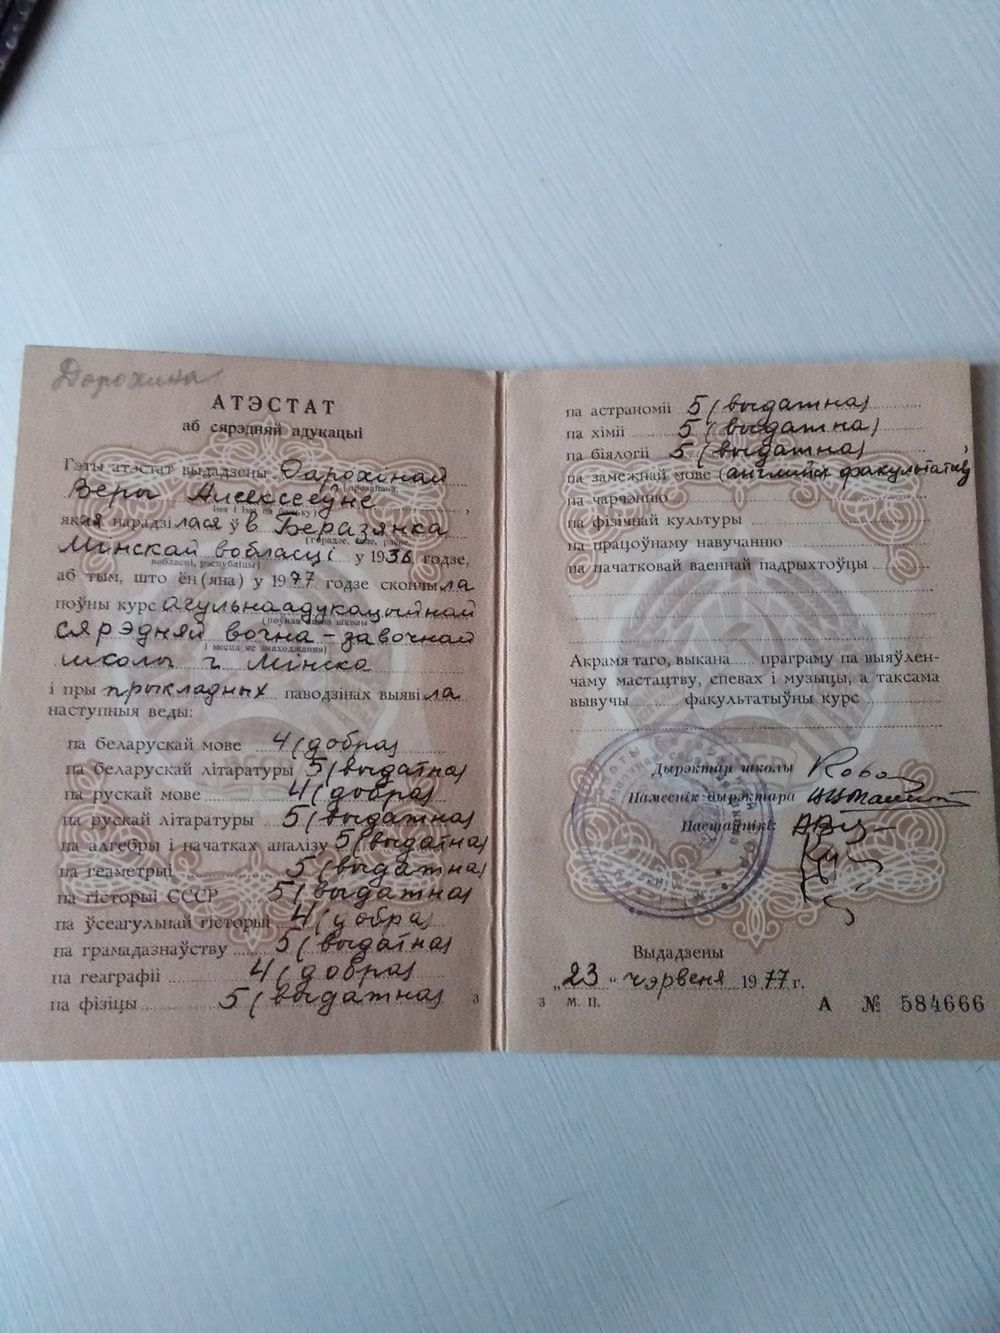 Дорохина
АТЭСТАТ
аб сярэдняй адукацыі
Гэты атэстат выдадзены Дарохінай
(прозвішча,
Веры Алексееўне,
імя і імя па бацьку)
якая нарадзілася ў в. Беразянка
(горадзе, сяле, раёне,
Мінскай вобласці у 1936 годзе,
вобласці, рэспубліцы)
аб тым, што ён(яна) у 1977 годзе скончыла
поўны курс агульнаадукацыйнай
(поўная назва школы
сярэдняй вочна-завочнай
і месца яе знаходжання)
школы г. Мінска
і пры прыкладных паводзінах выявіла
наступныя веды:
па беларускай мове 4 (добра)
па беларускай літаратуры 5 (выдатна)
па рускай мове 4 (добра)
па рускай літаратуры 5 (выдатна)
па алгебры і начатках аналізу 5 (выдатна)
па геаметрыі 5 (выдатна)
па гісторыі СССР 5 (выдатна)
па ўсеагульнай гісторыі 4 (добра)
па грамадазнаўству 5 (выдатна)
па геаграфіі 4 (добра)
па фізіцы 5 (выдатна)
3
па астраноміі 5 (выдатна)
па хіміі 5 (выдатна)
па біялогіі 5 (выдатна)
па замежнай мове (англійск факультатыў)
па чарчэнню
па фізічнай культуры
па працоўнаму навучанню
па пачатковай ваеннай падрыхтоўцы
Акрамя таго, выкана праграму па выяўлен-
чаму мастацтву, спевах і музыцы, а таксама
вывучы факультатыўны курс
Дырэктар школы
Намеснік дырэктара
Настаўнікі:
Выдадзены
„23" чэрвеня 1977 г.
3 М. П.
А № 584666